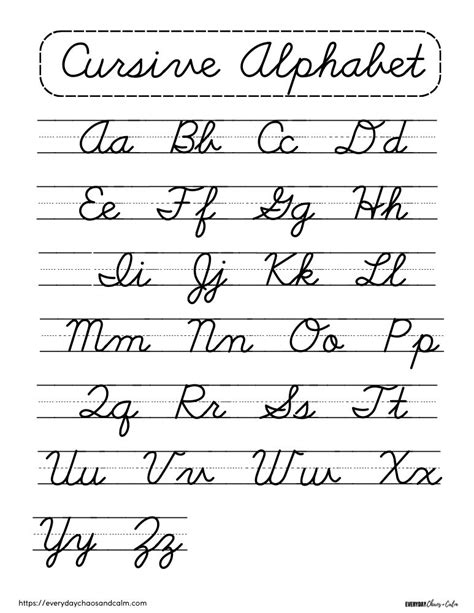 Cursive Alphabet
Aa Bb Cc Dd
Ee Ff Gg Hh
Ii Jj Kk Ll
Mm Nn Oo Pp
Qq Rr Ss Tt
Uu Vv Ww Xx
Yy Zz
https://everydaychaosandcalm.com/ EVERYDAY Chaos + Calm